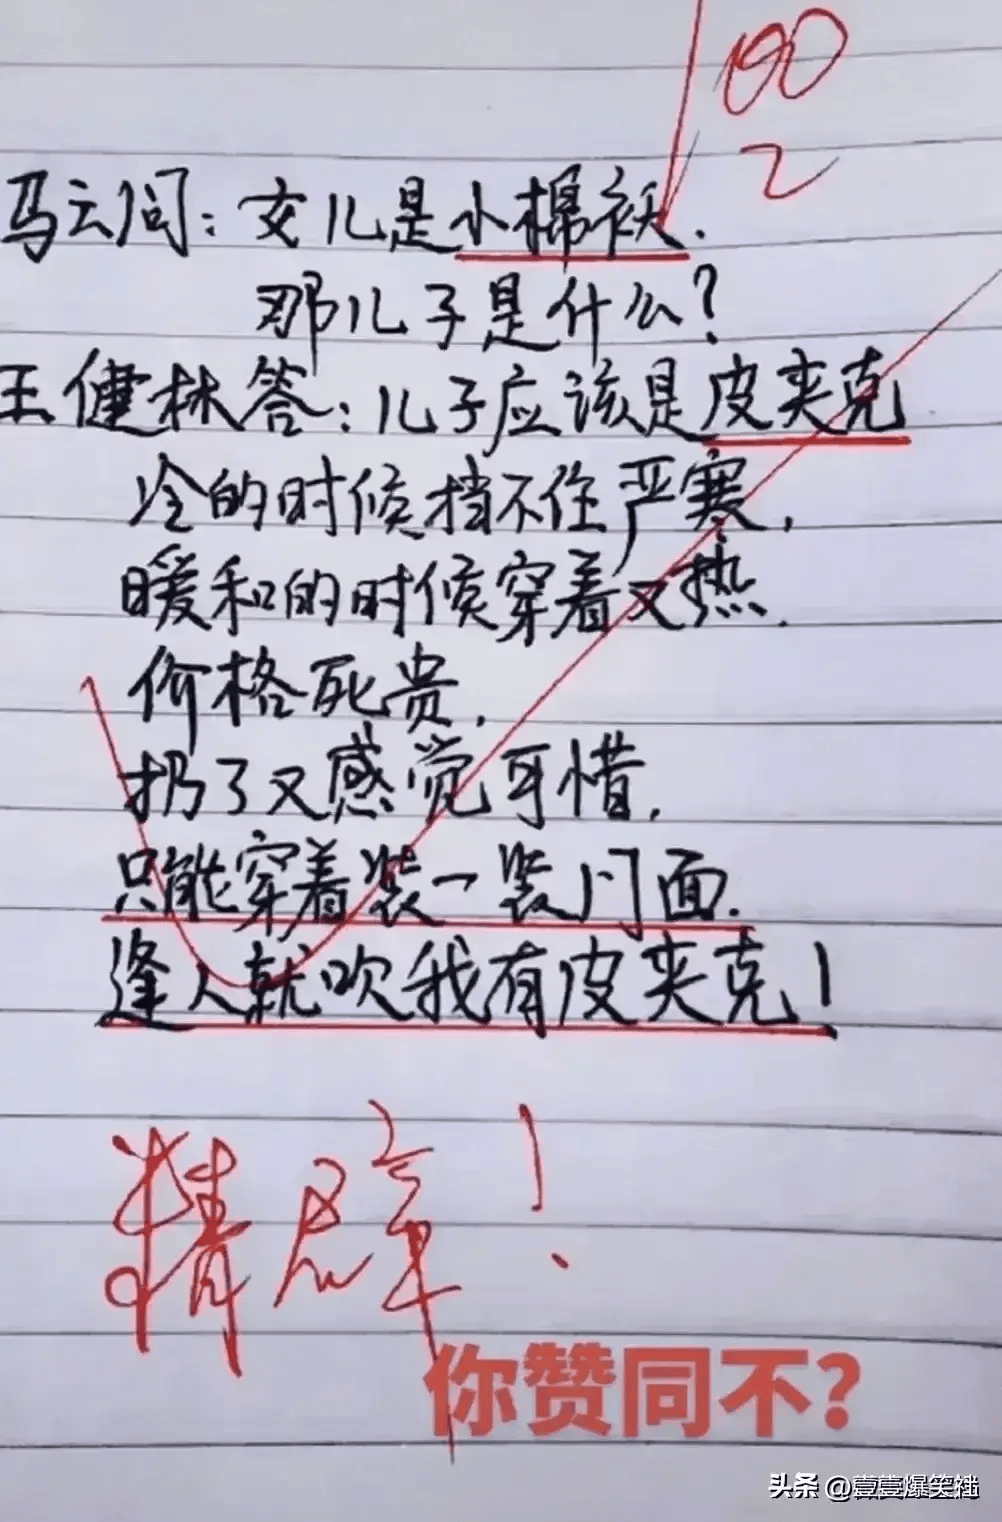 100
2
马云问：女儿是小棉袄．
那儿子是什么？
王健林答：儿子应该是皮夹克
冷的时候挡不住严寒，
暖和的时候穿着又热．
价格死贵，
扔了又感觉可惜，
只能穿着装一装门面．
逢人就吹我有皮夹克！
精辟！
你赞同不？
头条 @壹壹爆笑社